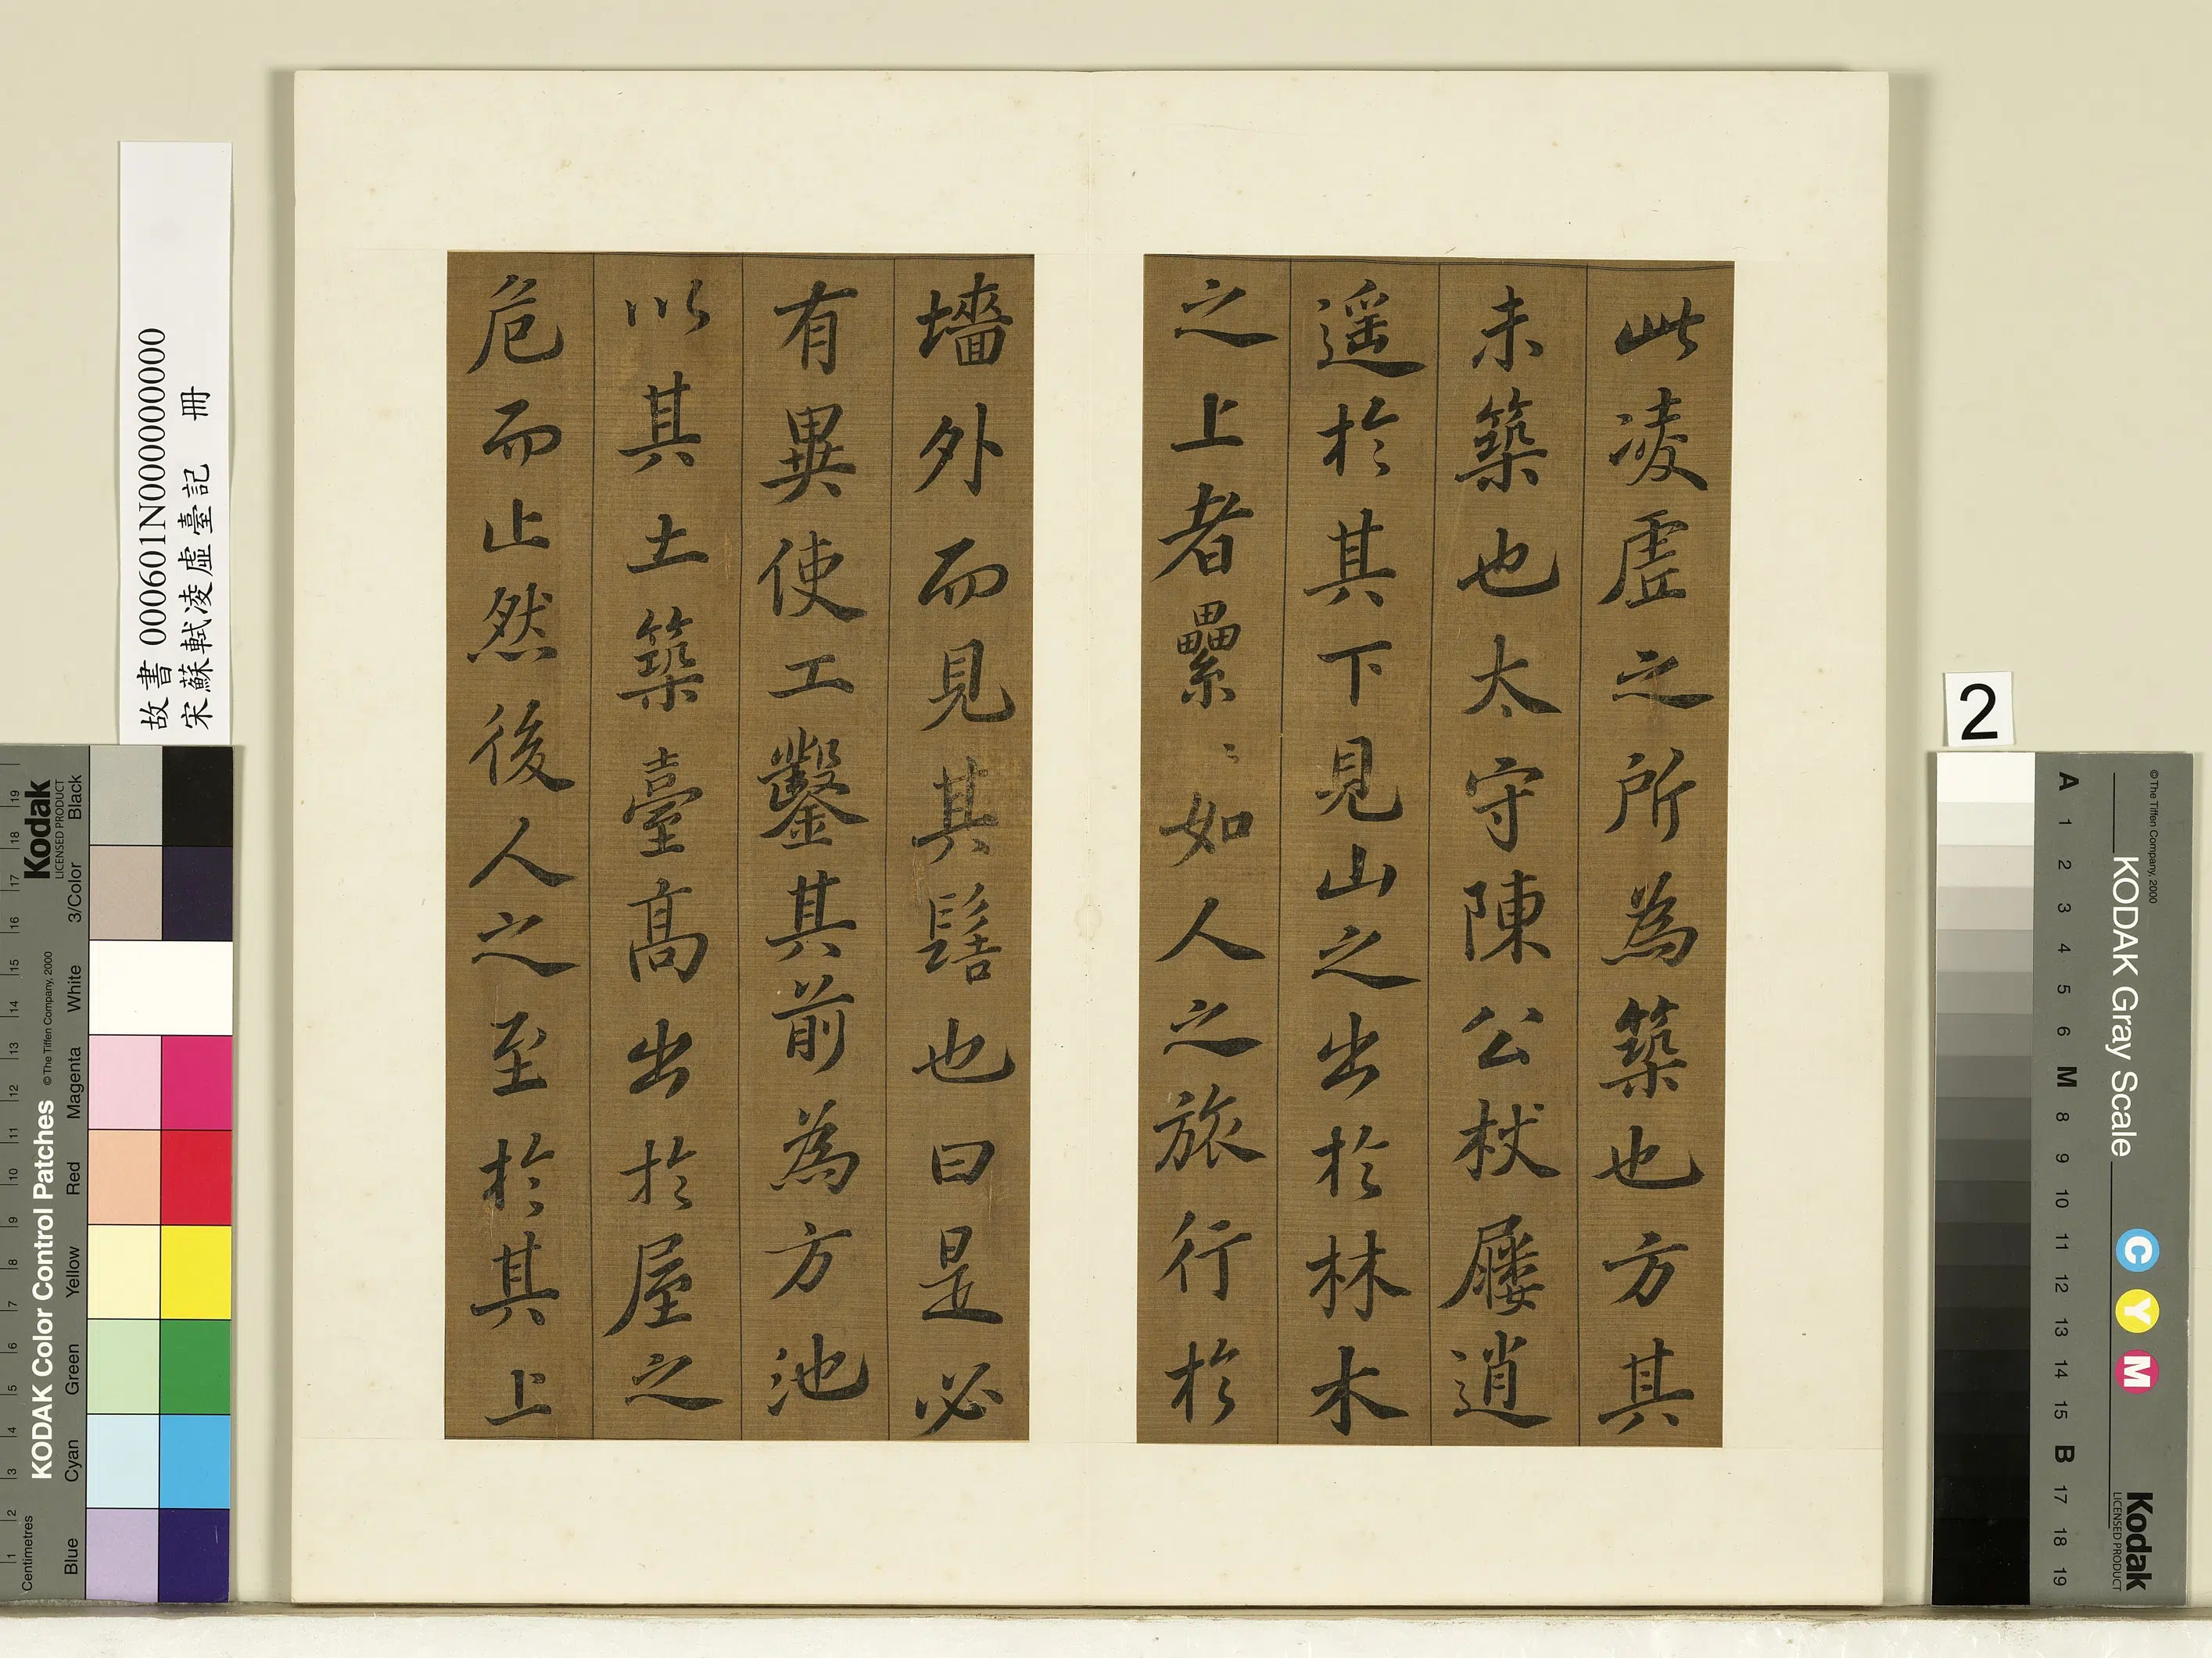 此凌虛之所為築也方其
未築也太守陳公杖屨逍
遥於其下見山之出於林木
之上者纍〻如人之旅行於
墻外而見其髻也曰是必
有異使工鑿其前為方池
以其土築臺高出於屋之
危而止然後人之至於其上
故書 000601N000000000
宋蘇軾凌虛臺記 冊
2
Kodak
LICENSED PRODUCT
KODAK Color Control Patches
© The Tiffen Company, 2000
Black
3/Color
White
Magenta
Red
Yellow
Green
Cyan
Blue
Centimetres
1 2 3 4 5 6 7 8 9 10 11 12 13 14 15 16 17 18 19
© The Tiffen Company, 2000
KODAK Gray Scale
C Y M
Kodak
LICENSED PRODUCT
A 1 2 3 4 5 6 M 8 9 10 11 12 13 14 15 B 17 18 19